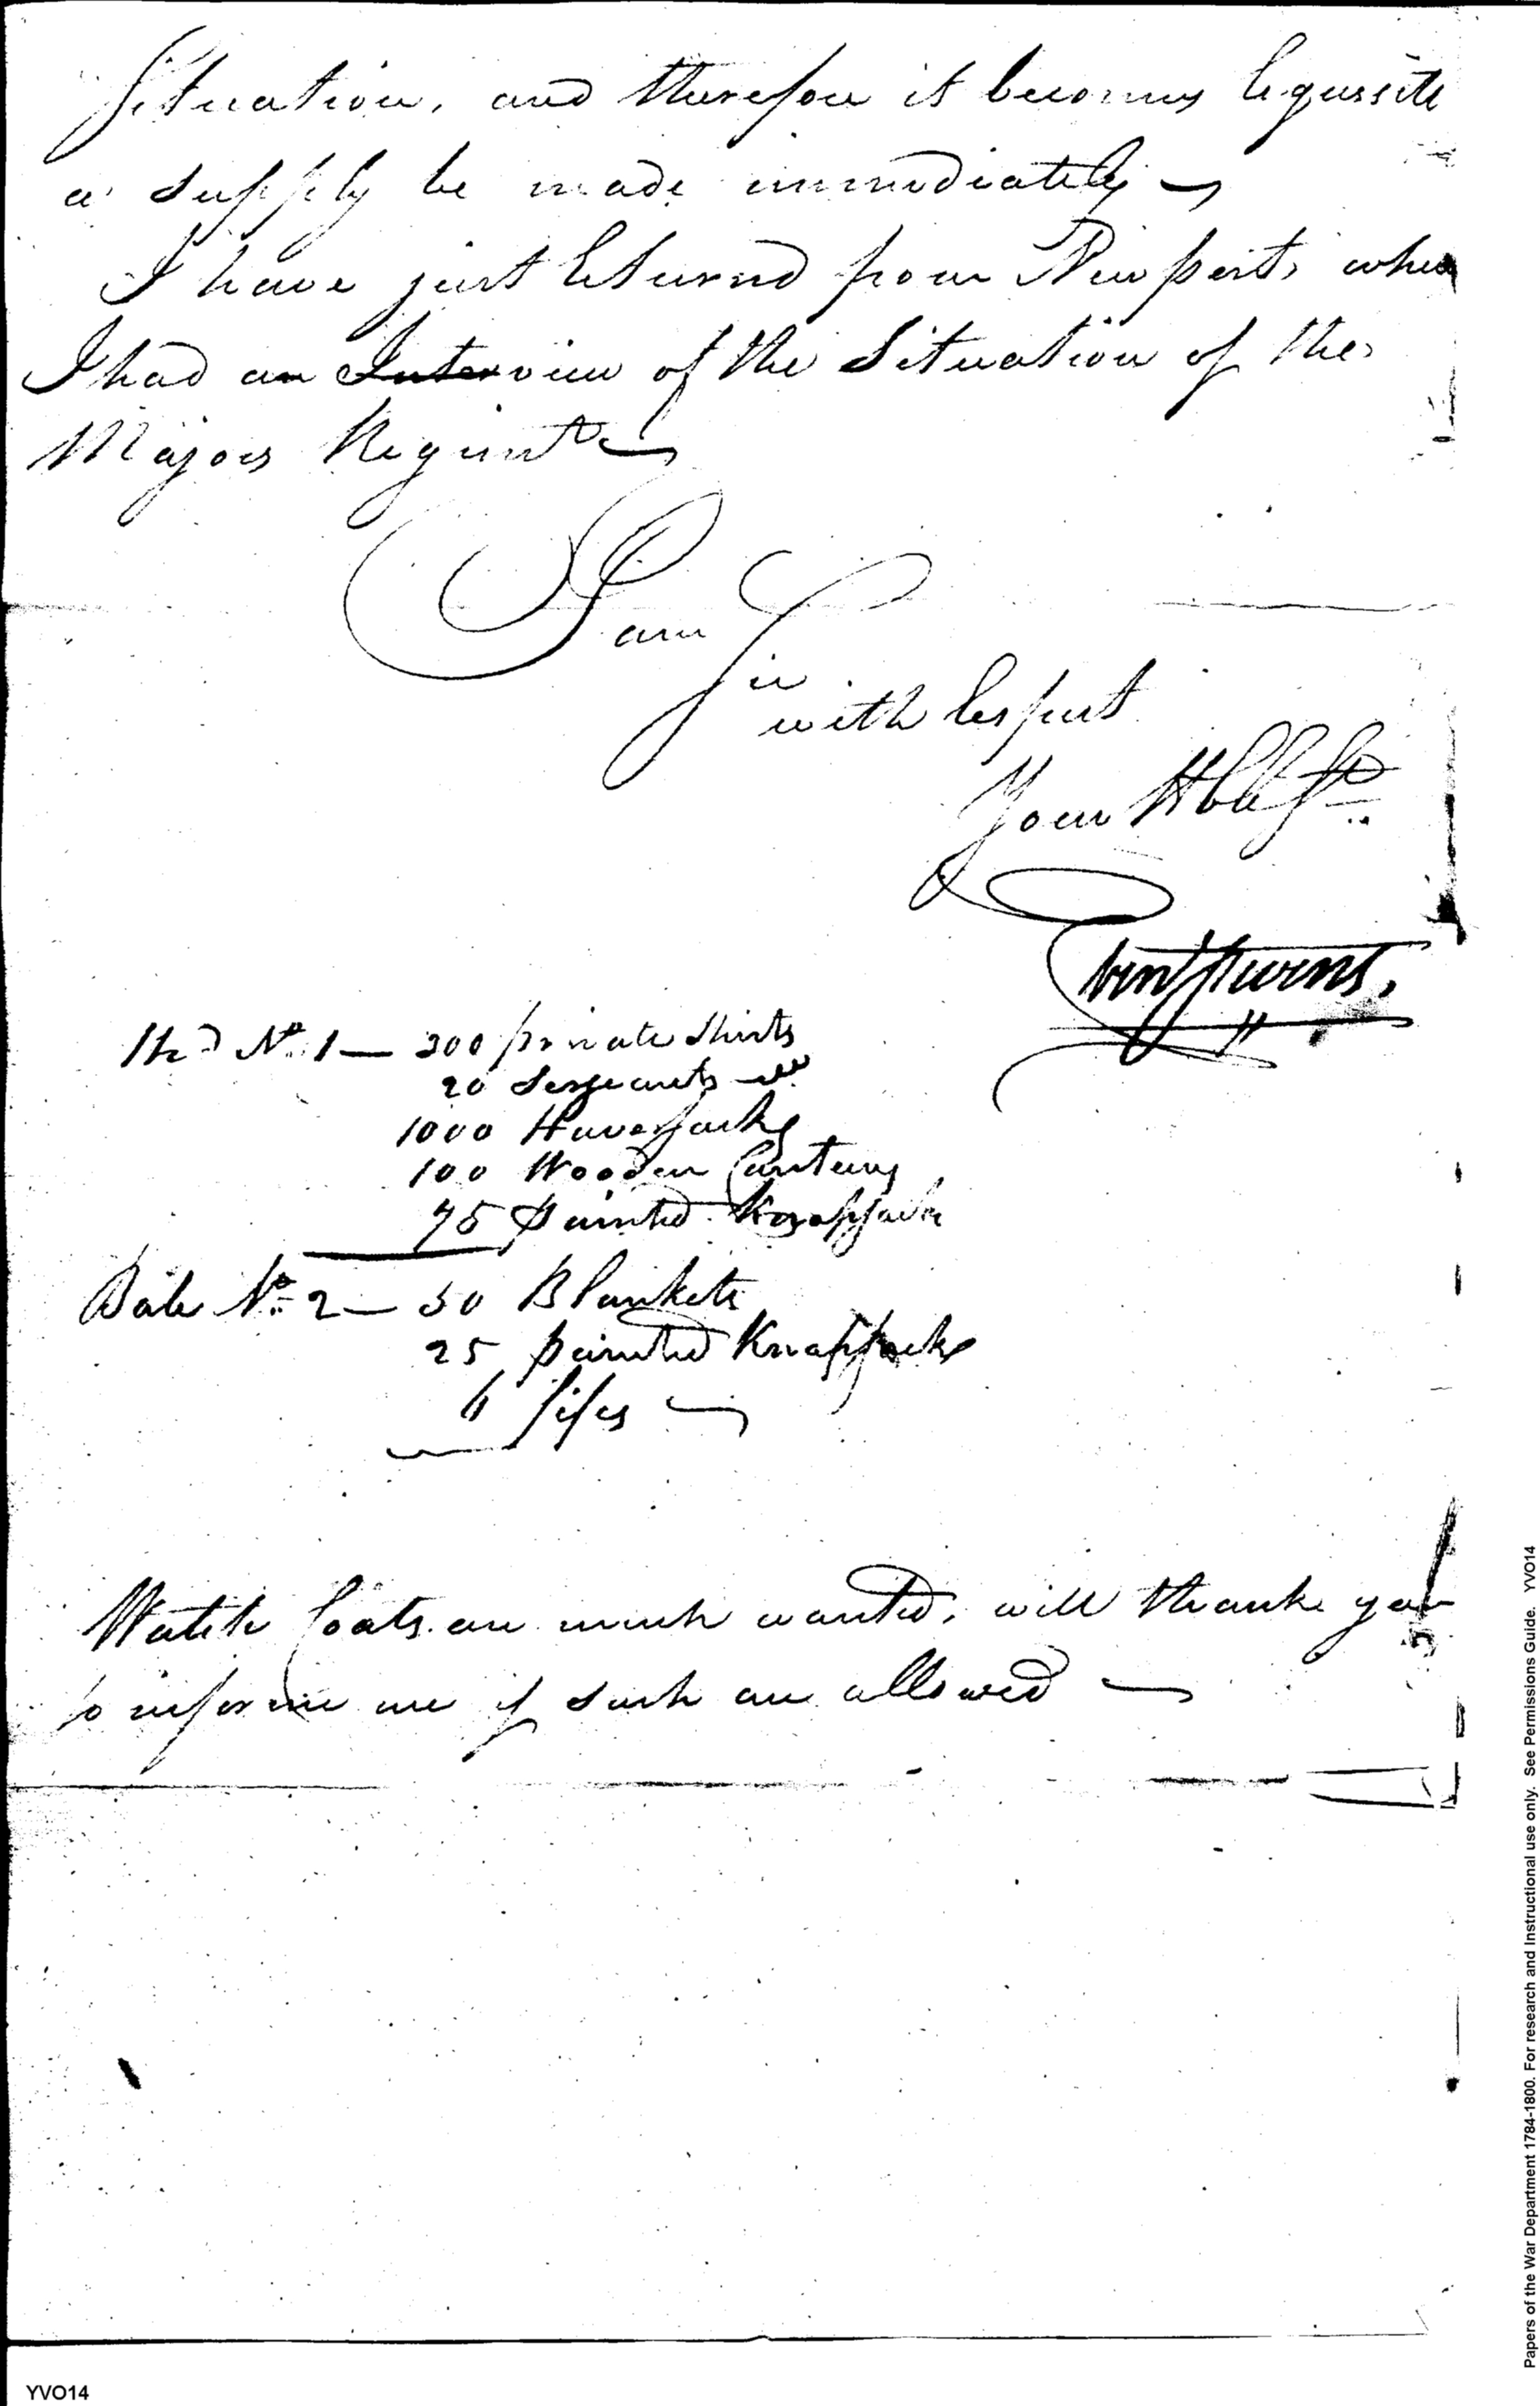 Situation, and therefore it becomes requissite
a supply be made immediately
I have just returnd from Newport, where
I had an Interview of the Situation of the
Majors Regimt
I am
Sir
with respect
Your Hble St
Ebenr Stevens.
Hhd No. 1 — 300 private Shirts
20 Sergeants do
1000 Haversacks
100 Wooden Canteens
75 painted Knapsacks
Bale No. 2 — 50 Blankets
25 painted Knapsacks
6 fifes
Watch Coats are much wanted, will thank you
to informe me if such are allowed
YVO14
Papers of the War Department 1784-1800. For research and Instructional use only. See Permissions Guide. YVO14